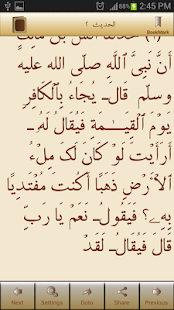 2:45 PM
الحديث ٢
BookMark
أَنَّ نَبِيَّ ٱللَّهِ صلى الله عليه
وسلم قَالَ‏ـ يُجَاءُ بِٱلْكَافِرِ
يَوْمَ ٱلْقِيَـٰمَةِ فَيُقَالُ لَهُ
أَرَأَيْتَ لَوْ كَانَ لَكَ مِلْءُ
ٱلْأَرْضِ ذَهَبًا أَكُنْتَ مُفْتَدِيًا
بِهِۦ؟ فَيَقُولُ‏ـ نَعَمْ يَا رَبِّ
قَالَ فَيُقَالُ‏ـ لَقَدْ
Next Settings Goto Share Previous